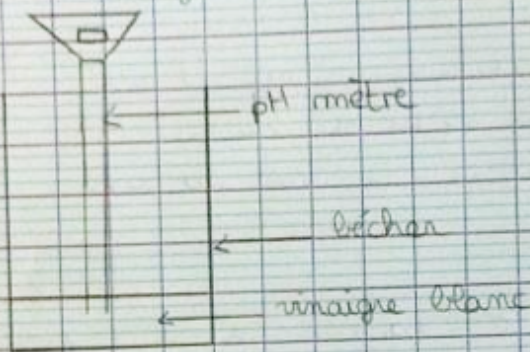 pH mètre
bécher
vinaigre blanc